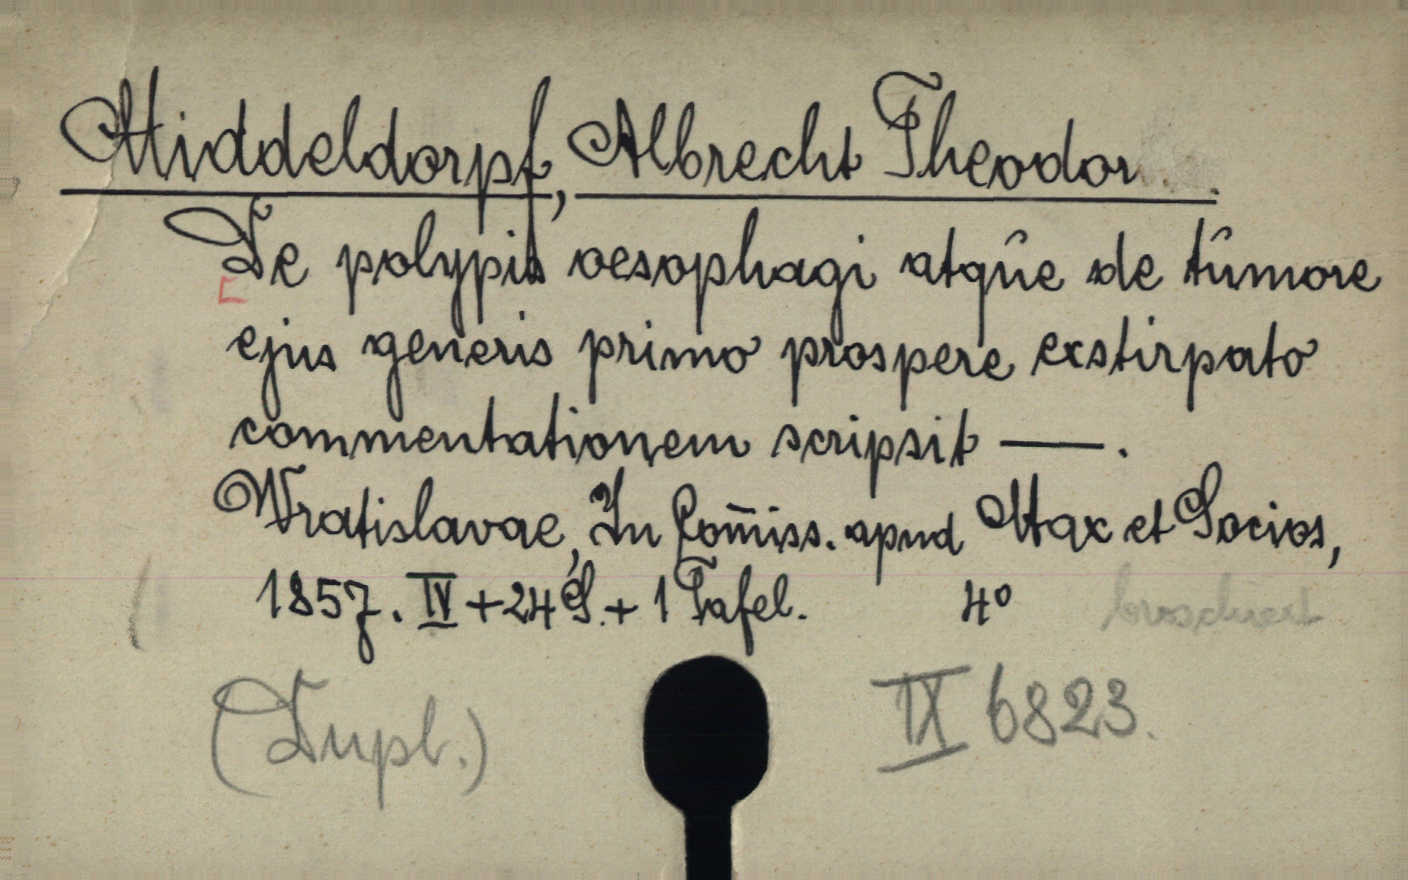 Middeldorpf, Albrecht Theodor.
De polypis oesophagi atqûe de tûmore
ejus generis primo prospere exstirpato
commentationem scripsit —.
Wratislavae, In Com̄iss. apud Max et Socios,
1857. IV + 24 S. + 1 Tafel. 4°
(Dupl.) IX 6823.